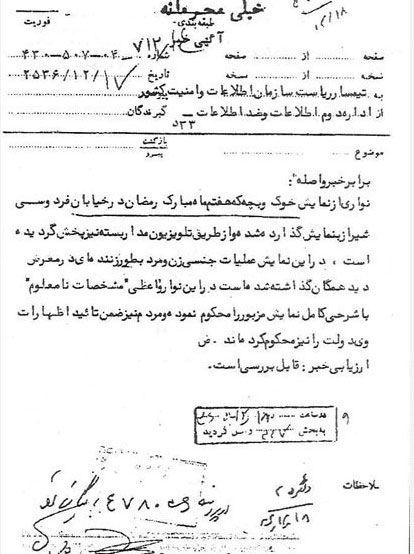 خیلی محرمانه
طبقه‌بندی-
فوریت
آگهی خبر
صفحه ........ از ........ صفحه شماره ۷۱۲/۰۴-۵۰۷-۴۳۰
نسخه ........ از ........ نسخه تاریخ ۲۵۳۶/۱۲/۱۷
به تیمسار ریاست سازمان اطلاعات و امنیت کشور
از اداره دوم اطلاعات و ضد اطلاعات — گیرندگان
۵۳۳
بازگشت
پیرو
موضوع
برابر خبر واصله:
نواری از نمایش خوک و بچه که هفتم ماه مبارک رمضان در خیابان فردوسی
شیراز بنمایش گذارده شده و از طریق تلویزیون مدار بسته نیز پخش گردیده
است، در این نمایش عملیات جنسی زن و مرد بطور زننده ای در معرض
دید همگان گذاشته شده است در این نوار واعظی "مشخصات نامعلوم"
با شرحی کامل نمایش مزبور را محکوم نموده و مردم نیز ضمن تائید اظهارات
وی دولت را نیز محکوم کرده اند. ض
ارزیابی خبر: قابل بررسی است.
در ساعت
به بخش ۳۳۲ وارد گردید
۹
ملاحظات